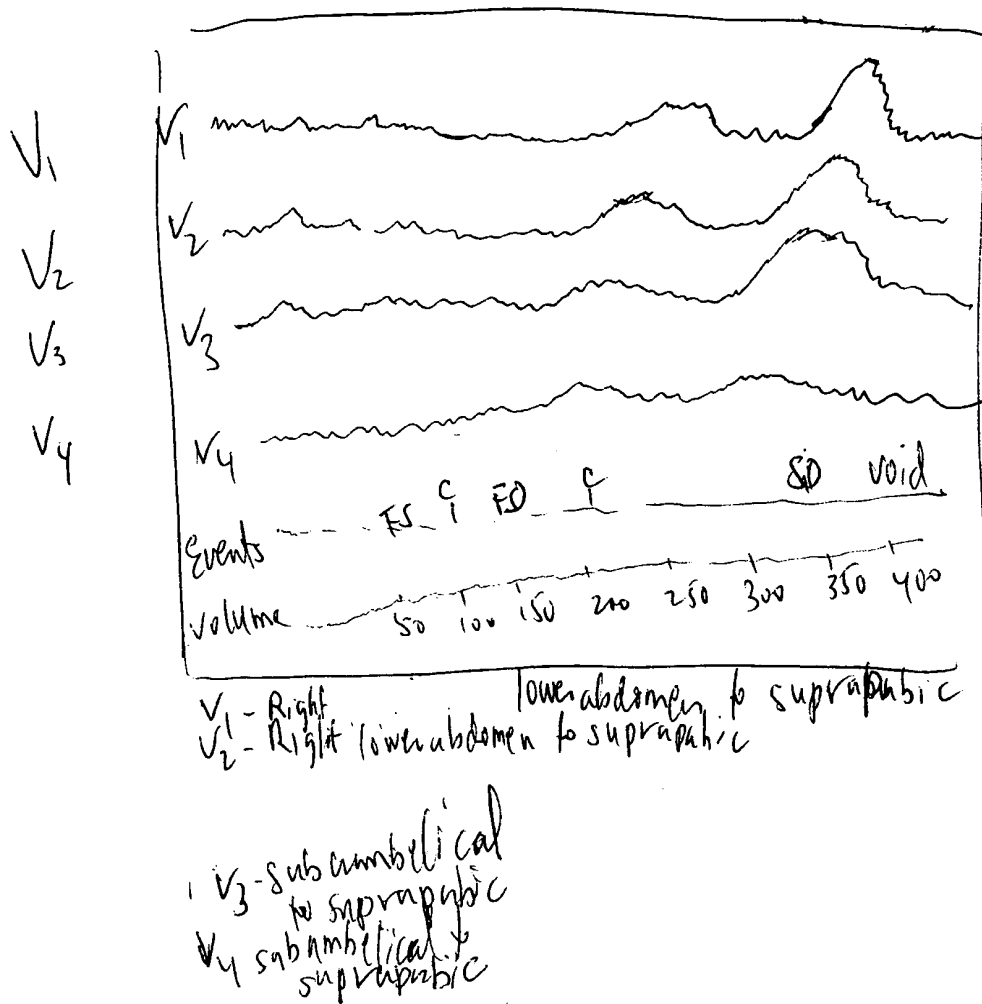 V1
V2
V3
V4
V1
V2
V3
V4
Events FS C FD C SD void
Volume 50 100 150 200 250 300 350 400
V1 - Right lowerabdomen to suprapubic
V2 - Right lowerabdomen to suprapubic
V3 - subumbelical
to suprapubic
V4 subumbelical to
suprapubic